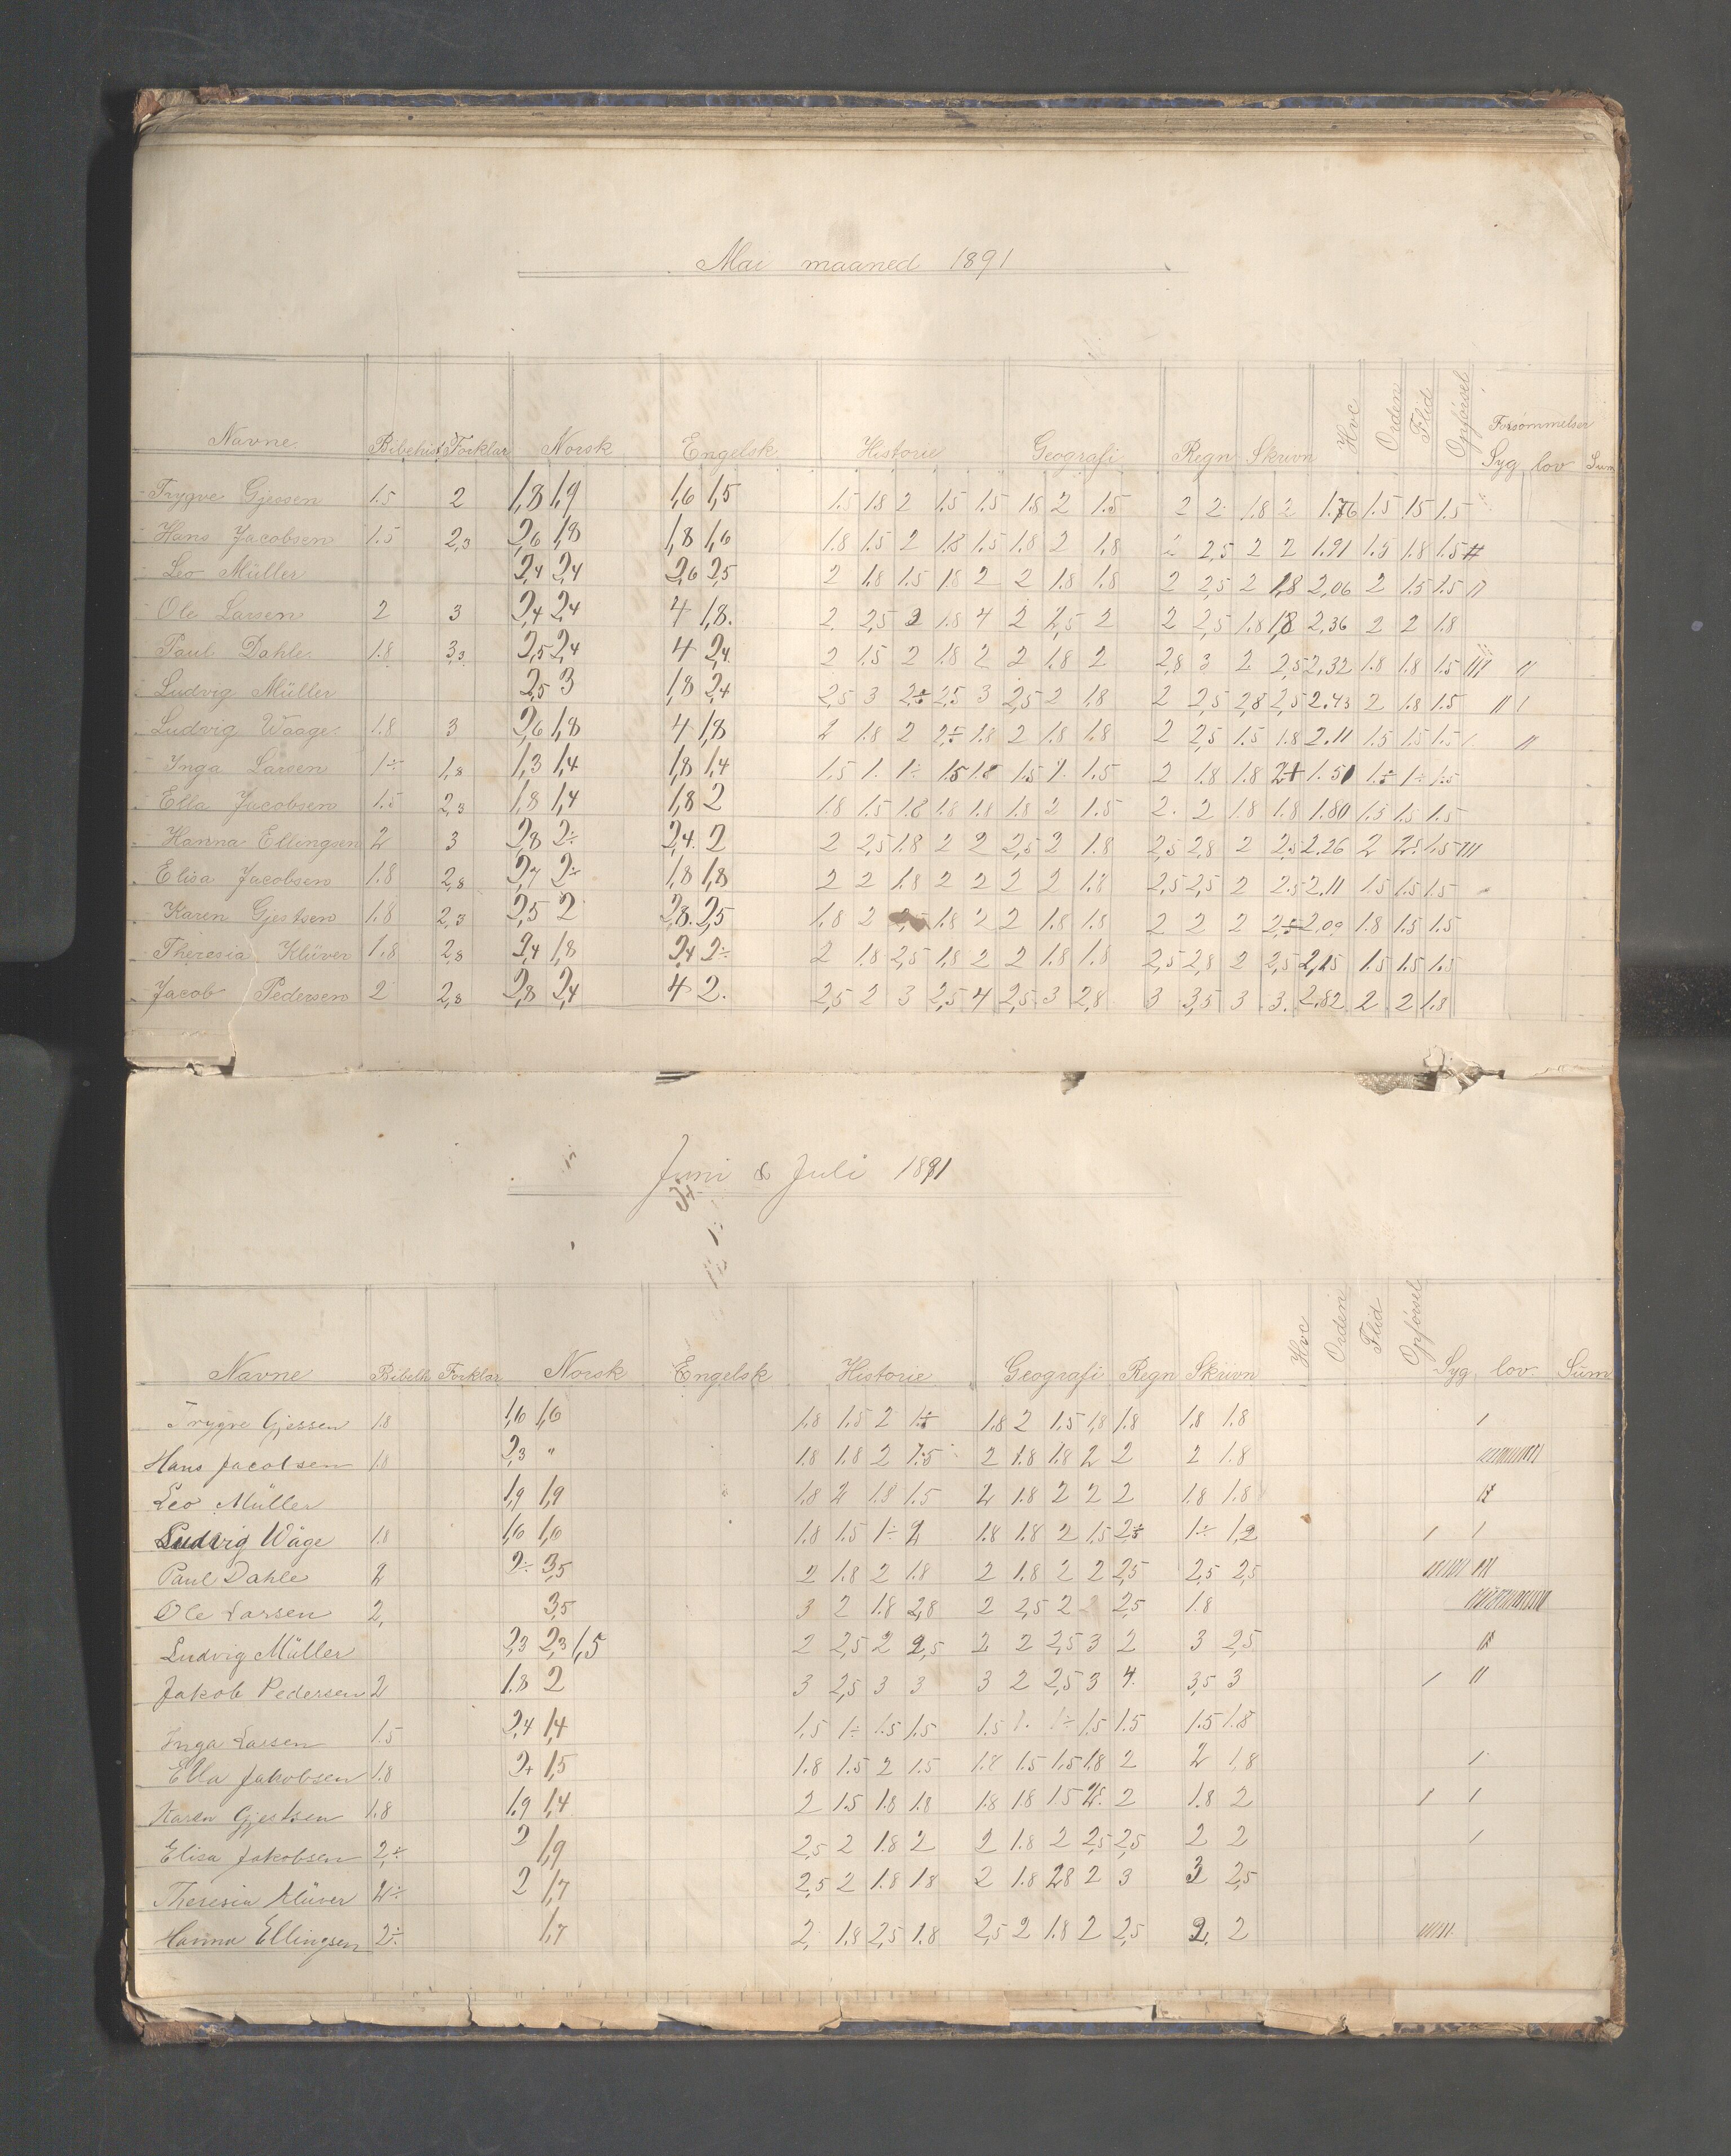 Mai maaned 1891
Navne Bibelhist Forklar Norsk Engelsk Historie Geografi Regn Skrivn Hvc Orden Flid Opførsel Forsømmelser
Syg lov Sum
Trygve Gjessen 1.5 2 1,8 1,9 1,6 1,5 1.5 1.8 2 1.5 1.5 1.8 2 1.5 2 2 1.8 2 1.76 1.5 1.5 1.5
Hans Jacobsen 1.5 2,3 2,6 1,8 1,8 1,6 1.8 1.5 2 1.8 1.5 1.8 2 1,8 2 2,5 2 2 1.91 1.5 1.8 1.5 //
Leo Müller 2,4 2,4 2,6 2,5 2 1,8 1.5 1.8 2 2 1.8 1.8 2 2,5 2 1,8 2,06 2 1.5 1.5 //
Ole Larsen 2 3 2,4 2,4 4 1,8. 2 2,5 2 1.8 4 2 2,5 2 2 2,5 1.8 1,8 2,36 2 2 1.8
Paul Dahle. 1.8 3,3 2,5 2,4 4 2,4. 2 1.5 2 1.8 2 2 1.8 2 2,8 3 2 2,5 2,32 1.8 1.8 1.5 //// //
Ludvig Müller 2,5 3 1,8 2,4 2,5 3 2÷ 2,5 3 2,5 2 1.8 2 2,5 2,8 2,5 2.43 2 1.8 1.5 // /
Ludvig Waage. 1.8 3 2,6 1,8 4 1,8 2 1.8 2 2÷ 1.8 2 1.8 1.8 2 2,5 1.5 1.8 2.11 1.5 1.5 1.5 / //
Inga Larsen 1÷ 1,8 1,3 1,4 1,8 1,4 1,5 1. 1÷ 1.5 1.8 1.5 2. 1.5 2 1.8 1.8 2+ 1.51 1÷ 1÷ 1.5
Ella Jacobsen 1.5 2,3 1,8 1,4 1,8 2 1.8 1.5 1.8 1.8 1.8 1.8 2 1.5 2. 2 1.8 1.8 1.80 1.5 1.5 1.5
Hanna Ellingsen 2 3 2,8 2÷ 2,4. 2 2 2,5 1.8 2 2 2,5 2 1.8 2,5 2,8 2 2,5 2.26 2 2. 1.5 ///
Elisa Jacobsen 1.8 2,8 2,7 2÷ 1,8 1,8 2 2 1.8 2 2 2 2 1.8 2,5 2,5 2 2.5 2.11 1.5 1.5 1.5
Karen Gjestsen 1.8 2,3 2,5 2 2,8. 2,5 1,8 2 1.8 2 2 1.8 1.8 2 2 2 2,÷ 2,09 1.8 1.5 1.5
Theresia Klüver 1,8 2,8 2,4 1,8 2,4 2÷ 2 1.8 2,5 1,8 2 2 1.8 1.8 2,5 2,8 2 2,5 2,15 1.5 1.5 1.5
Jacob Pedersen 2 2,8 2,8 2,4 4 2. 2,5 2 3 2,5 4 2,5. 3 2,8 3 3,5 3 3. 2.82 2 2 1.8
Juni & Juli 1891
Navne Bibelh Forklar Norsk Engelsk Historie Geografi Regn Skrivn Hvc Orden Flid Opførsel Syg lov. Sum
Trygve Gjessen 1.8 1,6 1,6 1.8 1.5 2 1÷ 1.8 2 1.5 1,8 1.8 1.8 1.8 /
Hans Jacobsen 1.8 2,3 " 1.8 1.8 2 1.5 2 1.8 1.8 2 2 2 1.8 ///////////
Leo Müller 1,9 1,9 1.8 2 1.8 1.5 2 1.8 2 2 2 1.8 1.8
Ludvig Wåge 1.8 1,6 1,6 1.8 1.5 1÷ 2 1.8 1.8 2 1,5 2÷ 1÷ 1,2 / /
Paul Dahle 2 2÷ 3,5 2 1.8 2 1.8 2 1.8 2 2 2,5 2,5 2,5 ////// ///
Ole Larsen 2, 3,5 3 2 1.8 2,8 2 2,5 2 2 2,5 1.8
Ludvig Müller 2,3 2,3 1,5 2 2,5 2 2,5 2 2 2,5 3 2 3 2,5
Jakob Pedersen 2 1.8 2 3 2,5 3 3 3 2 2,5 3 4. 3,5 3 / //
Inga Larsen 1.5 2,4 1,4 1,5 1÷ 1.5 1.5 1.5 1. 1÷ 1.5 1.5 1.5 1.8
Ella Jakobsen 1.8 2+ 1,5 1.8 1.5 2 1.5 1.8 1.5 1.5 1.8 2 2 1,8 /
Karen Gjestsen 1.8 1.9 1,4 2 1.5 1.8 1.8 1.8 1.8 1.5 2. 2 1.8 2 / /
Elisa Jakobsen 2,÷ 2 1,9 2,5 2 1.8 2 2 1.8 2 2,5 2,5 2 2 /
Theresia Klüver 2÷ 2 1,7 2,5 2 1.8 1.8 2 1.8 2.8 2 3 3 2,5
Hanna Ellingsen 2÷ 1,7 2. 1.8 2,5 1.8 2,5 2 1.8 2 2,5 2. 2 /////